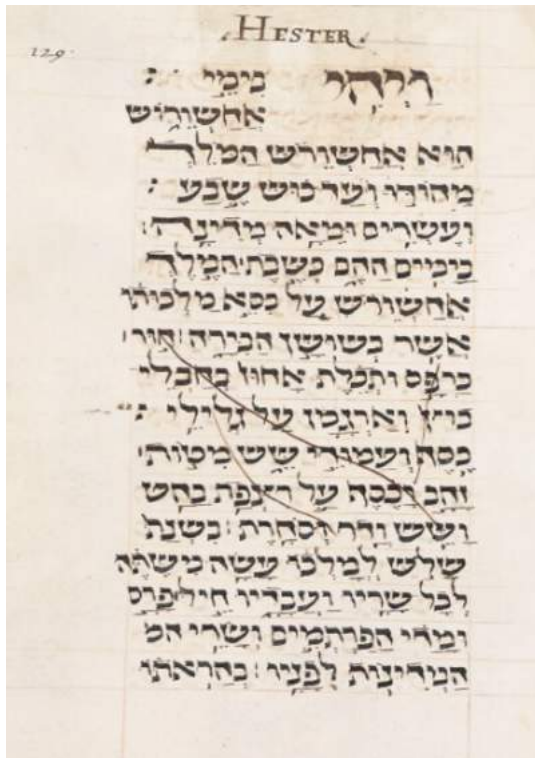 HESTER
129
ויהי בימי :
אחשורוש
הוא אחשורש המלך
מהודו ועד כוש שבע :
ועשרים ומאה מדינה :
בימים ההם כשבת המלך
אחשורש על כסא מלכותו
אשר בשושן הבירה : חור
כרפס ותכלת אחוז בחבלי
בוץ וארגמן על גלילי :
כסה ועמודי שש מטות
זהב וכסה על רצפת בהט
ושש ודר וסחרת : בשנת
שלש למלכו עשה משתה
לכל שריו ועבדיו חיל פרס
ומדי הפרתמים ושרי המ
המדינות לפניו : בהראתו